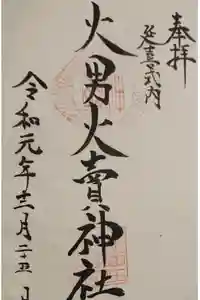 奉拝
延喜式内
火男火賣神社
令和元年十二月二十五日